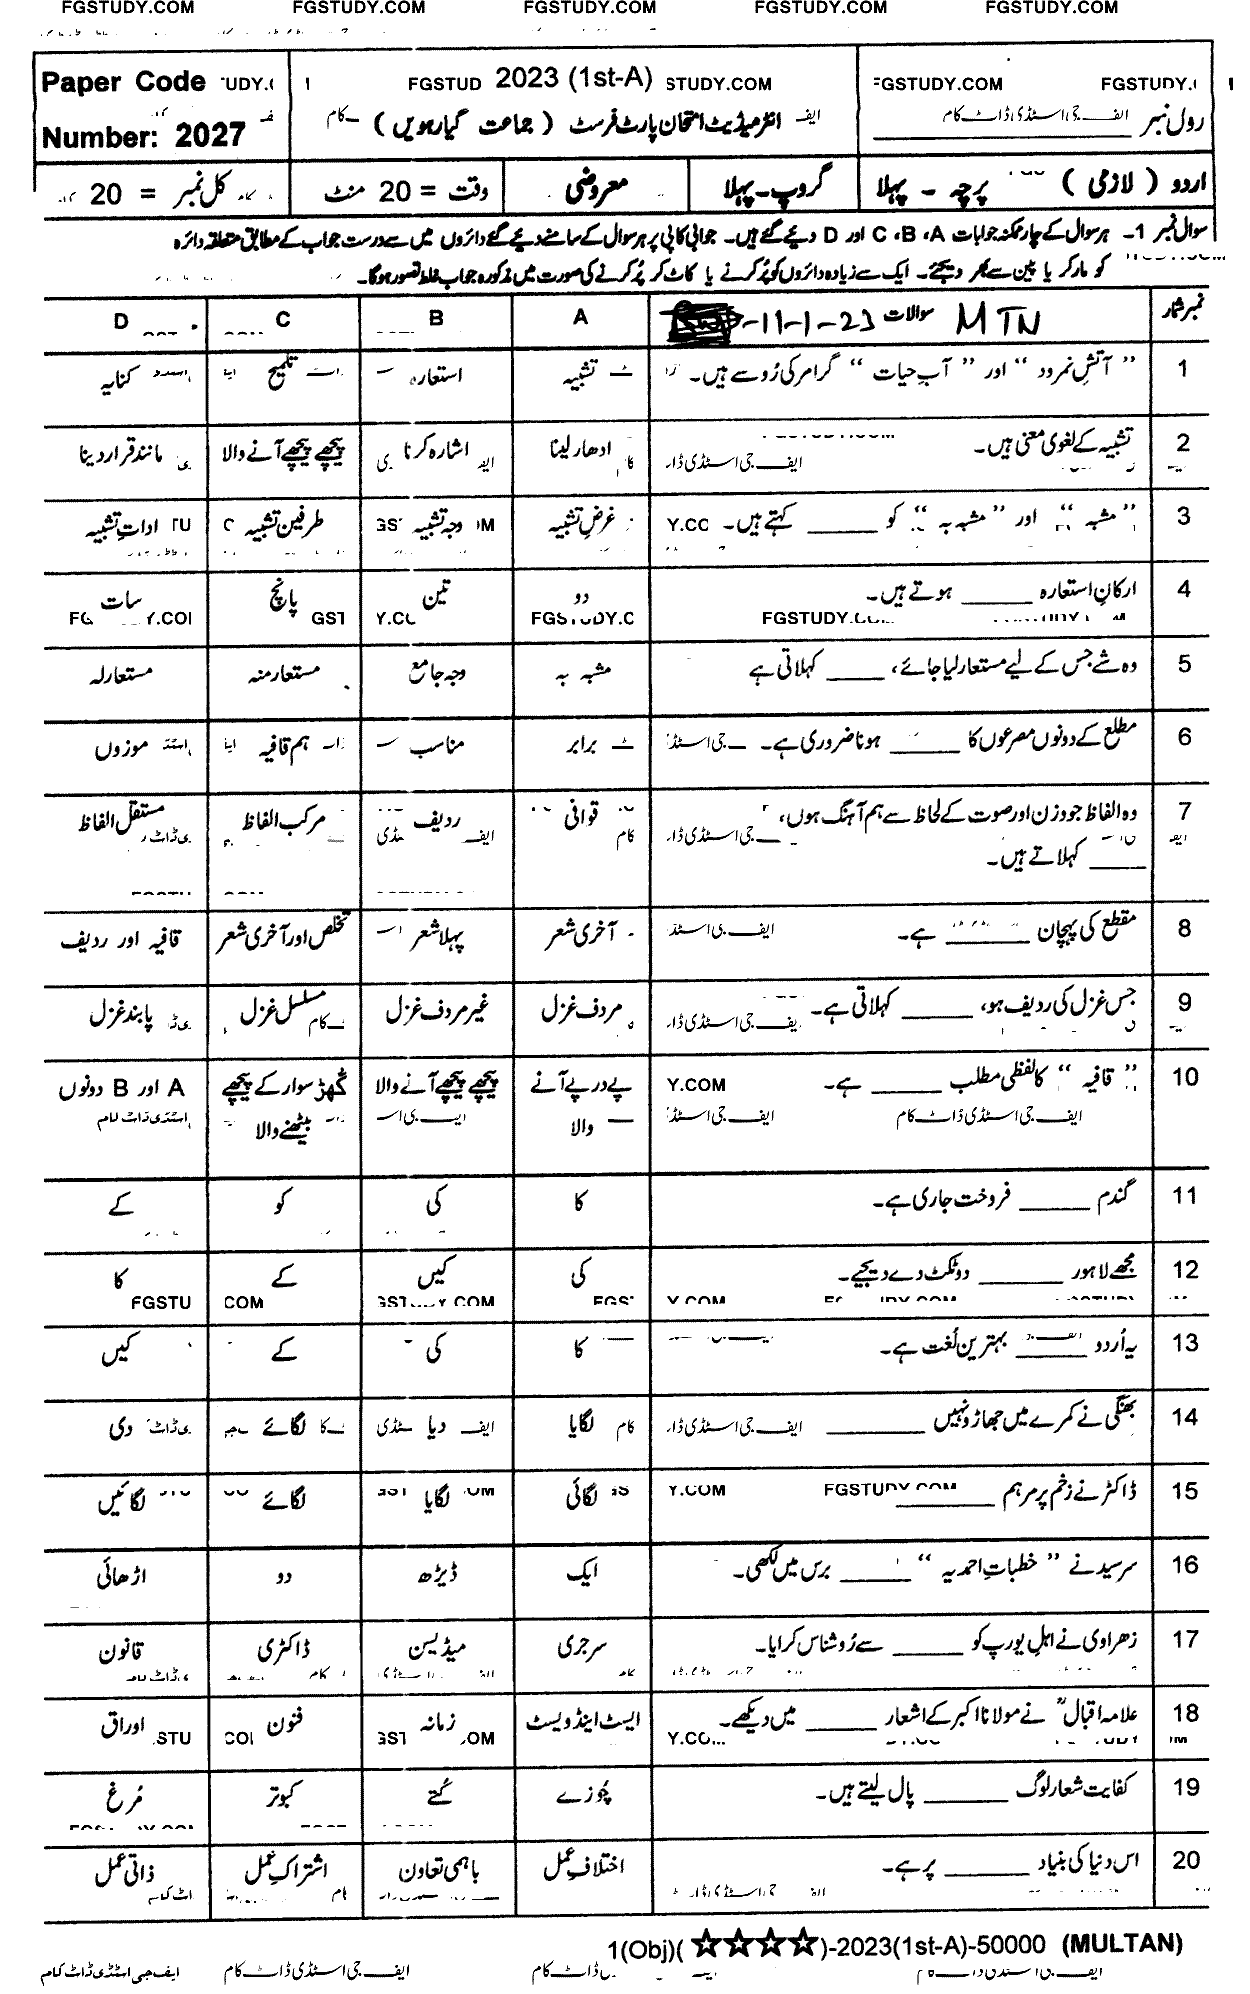 FGSTUDY.COM FGSTUDY.COM FGSTUDY.COM FGSTUDY.COM FGSTUDY.COM
Paper Code
Number: 2027
2023 (1st-A)
انٹرمیڈیٹ امتحان پارٹ فرسٹ ( جماعت گیارہویں )
رول نمبر
اردو ( لازمی ) پرچہ - پہلا گروپ۔پہلا معروضی وقت = 20 منٹ کل نمبر = 20
سوال نمبر 1۔ ہر سوال کے چار ممکنہ جوابات A ،B ،C اور D دیئے گئے ہیں۔ جوابی کاپی پر ہر سوال کے سامنے دیئے گئے دائروں میں سے درست جواب کے مطابق متعلقہ دائرہ
کو مارکر یا پین سے بھر دیجئے۔ ایک سے زیادہ دائروں کو پُر کرنے یا کاٹ کر پُر کرنے کی صورت میں مذکورہ جواب غلط تصور ہوگا۔
نمبر شمار سوالات MTN -11-1-23 A B C D
1 ”آتشِ نمرود“ اور ”آبِ حیات“ گرامر کی رُو سے ہیں۔ تشبیہ استعارہ تلمیح کنایہ
2 تشبیہ کے لغوی معنی ہیں۔ ادھار لینا اشارہ کرنا پیچھے پیچھے آنے والا مانند قرار دینا
3 ”مشبہ“ اور ”مشبہ بہ“ کو ______ کہتے ہیں۔ غرضِ تشبیہ وجہ تشبیہ طرفین تشبیہ اداتِ تشبیہ
4 ارکانِ استعارہ ______ ہوتے ہیں۔ دو تین پانچ سات
5 وہ شے جس کے لیے مستعار لیا جائے، ______ کہلاتی ہے مشبہ بہ وجہ جامع مستعار منہ مستعار لہ
6 مطلع کے دونوں مصرعوں کا ______ ہونا ضروری ہے۔ برابر مناسب ہم قافیہ موزوں
7 وہ الفاظ جو وزن اور صوت کے لحاظ سے ہم آہنگ ہوں، قوافی ردیف مرکب الفاظ مستقل الفاظ
______ کہلاتے ہیں۔
8 مقطع کی پہچان ______ ہے۔ آخری شعر پہلا شعر تخلص اور آخری شعر قافیہ اور ردیف
9 جس غزل کی ردیف ہو، ______ کہلاتی ہے۔ مردف غزل غیر مردف غزل مسلسل غزل پابند غزل
10 ”قافیہ“ کا لفظی مطلب ______ ہے۔ پے در پے آنے والا پیچھے پیچھے آنے والا گھڑ سوار کے پیچھے بیٹھنے والا A اور B دونوں
11 گندم ______ فروخت جاری ہے۔ کا کی کو کے
12 مجھے لاہور ______ دو ٹکٹ دے دیجیے۔ کی کیں کے کا
13 یہ اُردو ______ بہترین لُغت ہے۔ کا کی کے کیں
14 بھنگی نے کمرے میں جھاڑو نہیں ______ لگایا دیا لگائے دی
15 ڈاکٹر نے زخم پر مرہم ______ لگائی لگایا لگائے لگائیں
16 سرسید نے ”خطباتِ احمدیہ“ ______ برس میں لکھی۔ ایک ڈیڑھ دو اڑھائی
17 زھراوی نے اہلِ یورپ کو ______ سے رُوشناس کرایا۔ سرجری میڈیسن ڈاکٹری قانون
18 علامہ اقبالؒ نے مولانا اکبر کے اشعار ______ میں دیکھے۔ ایسٹ اینڈ ویسٹ زمانہ فنون اوراق
19 کفایت شعار لوگ ______ پال لیتے ہیں۔ چُوزے کُتے کبوتر مُرغ
20 اس دنیا کی بنیاد ______ پر ہے۔ اختلافِ عمل باہمی تعاون اشتراکِ عمل ذاتی عمل
1(Obj)(☆☆☆☆)-2023(1st-A)-50000 (MULTAN)
ایف جی اسٹڈی ڈاٹ کام ایف جی اسٹڈی ڈاٹ کام